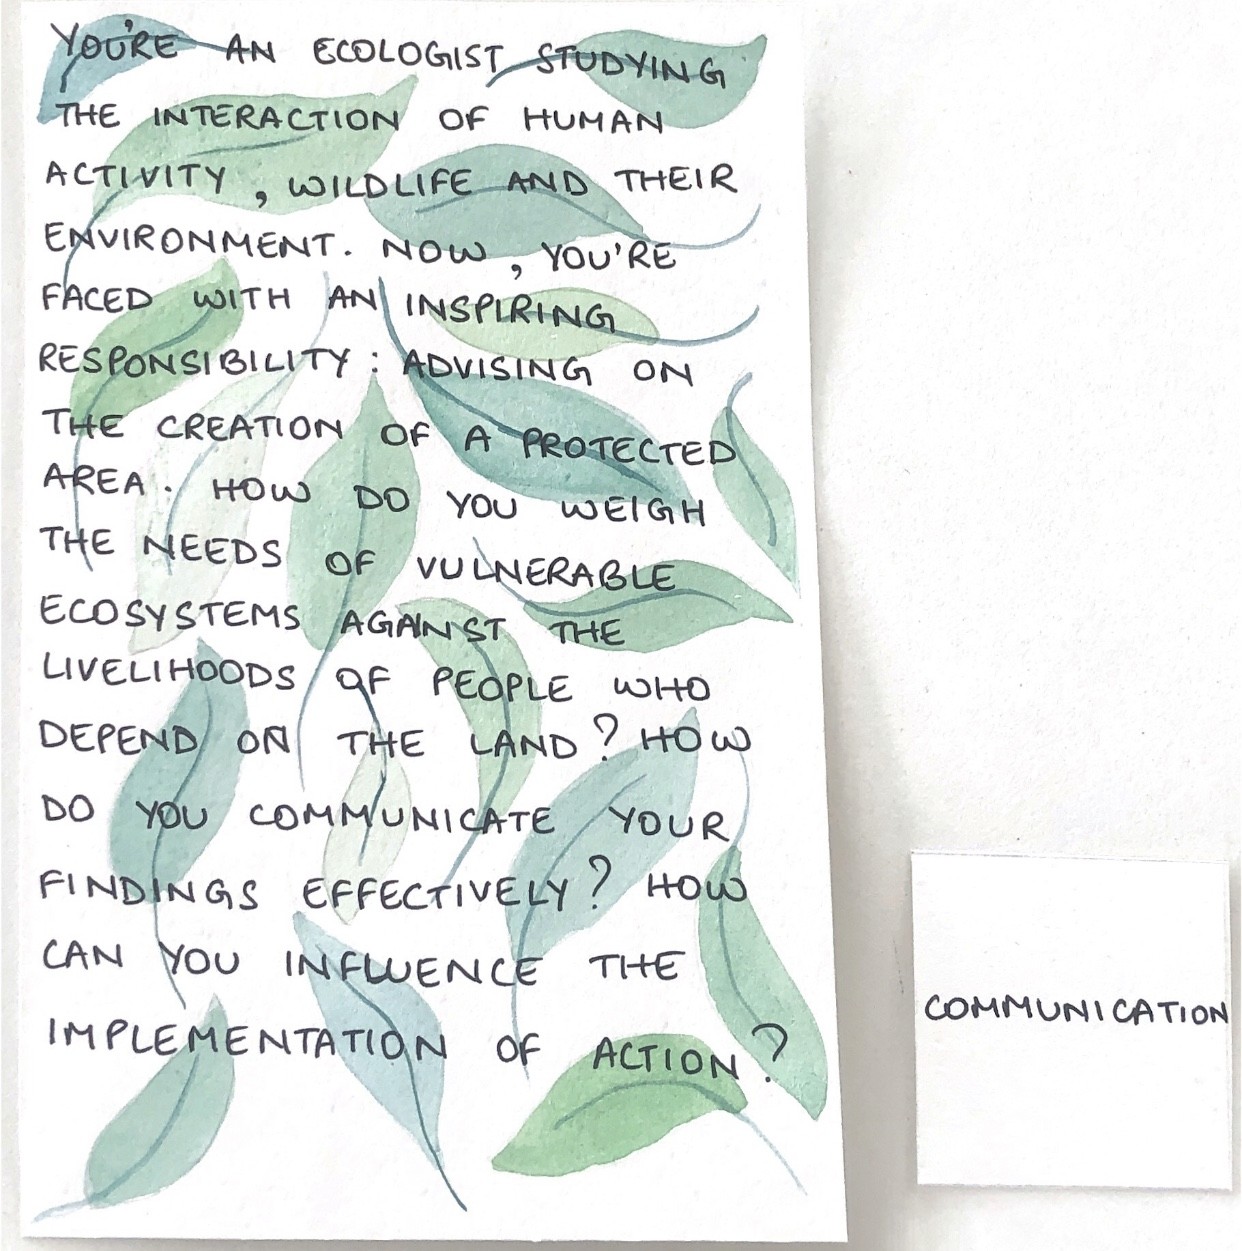 YOU'RE AN ECOLOGIST STUDYING
THE INTERACTION OF HUMAN
ACTIVITY, WILDLIFE AND THEIR
ENVIRONMENT. NOW, YOU'RE
FACED WITH AN INSPIRING
RESPONSIBILITY: ADVISING ON
THE CREATION OF A PROTECTED
AREA. HOW DO YOU WEIGH
THE NEEDS OF VULNERABLE
ECOSYSTEMS AGAINST THE
LIVELIHOODS OF PEOPLE WHO
DEPEND ON THE LAND? HOW
DO YOU COMMUNICATE YOUR
FINDINGS EFFECTIVELY? HOW
CAN YOU INFLUENCE THE
IMPLEMENTATION OF ACTION?
COMMUNICATION